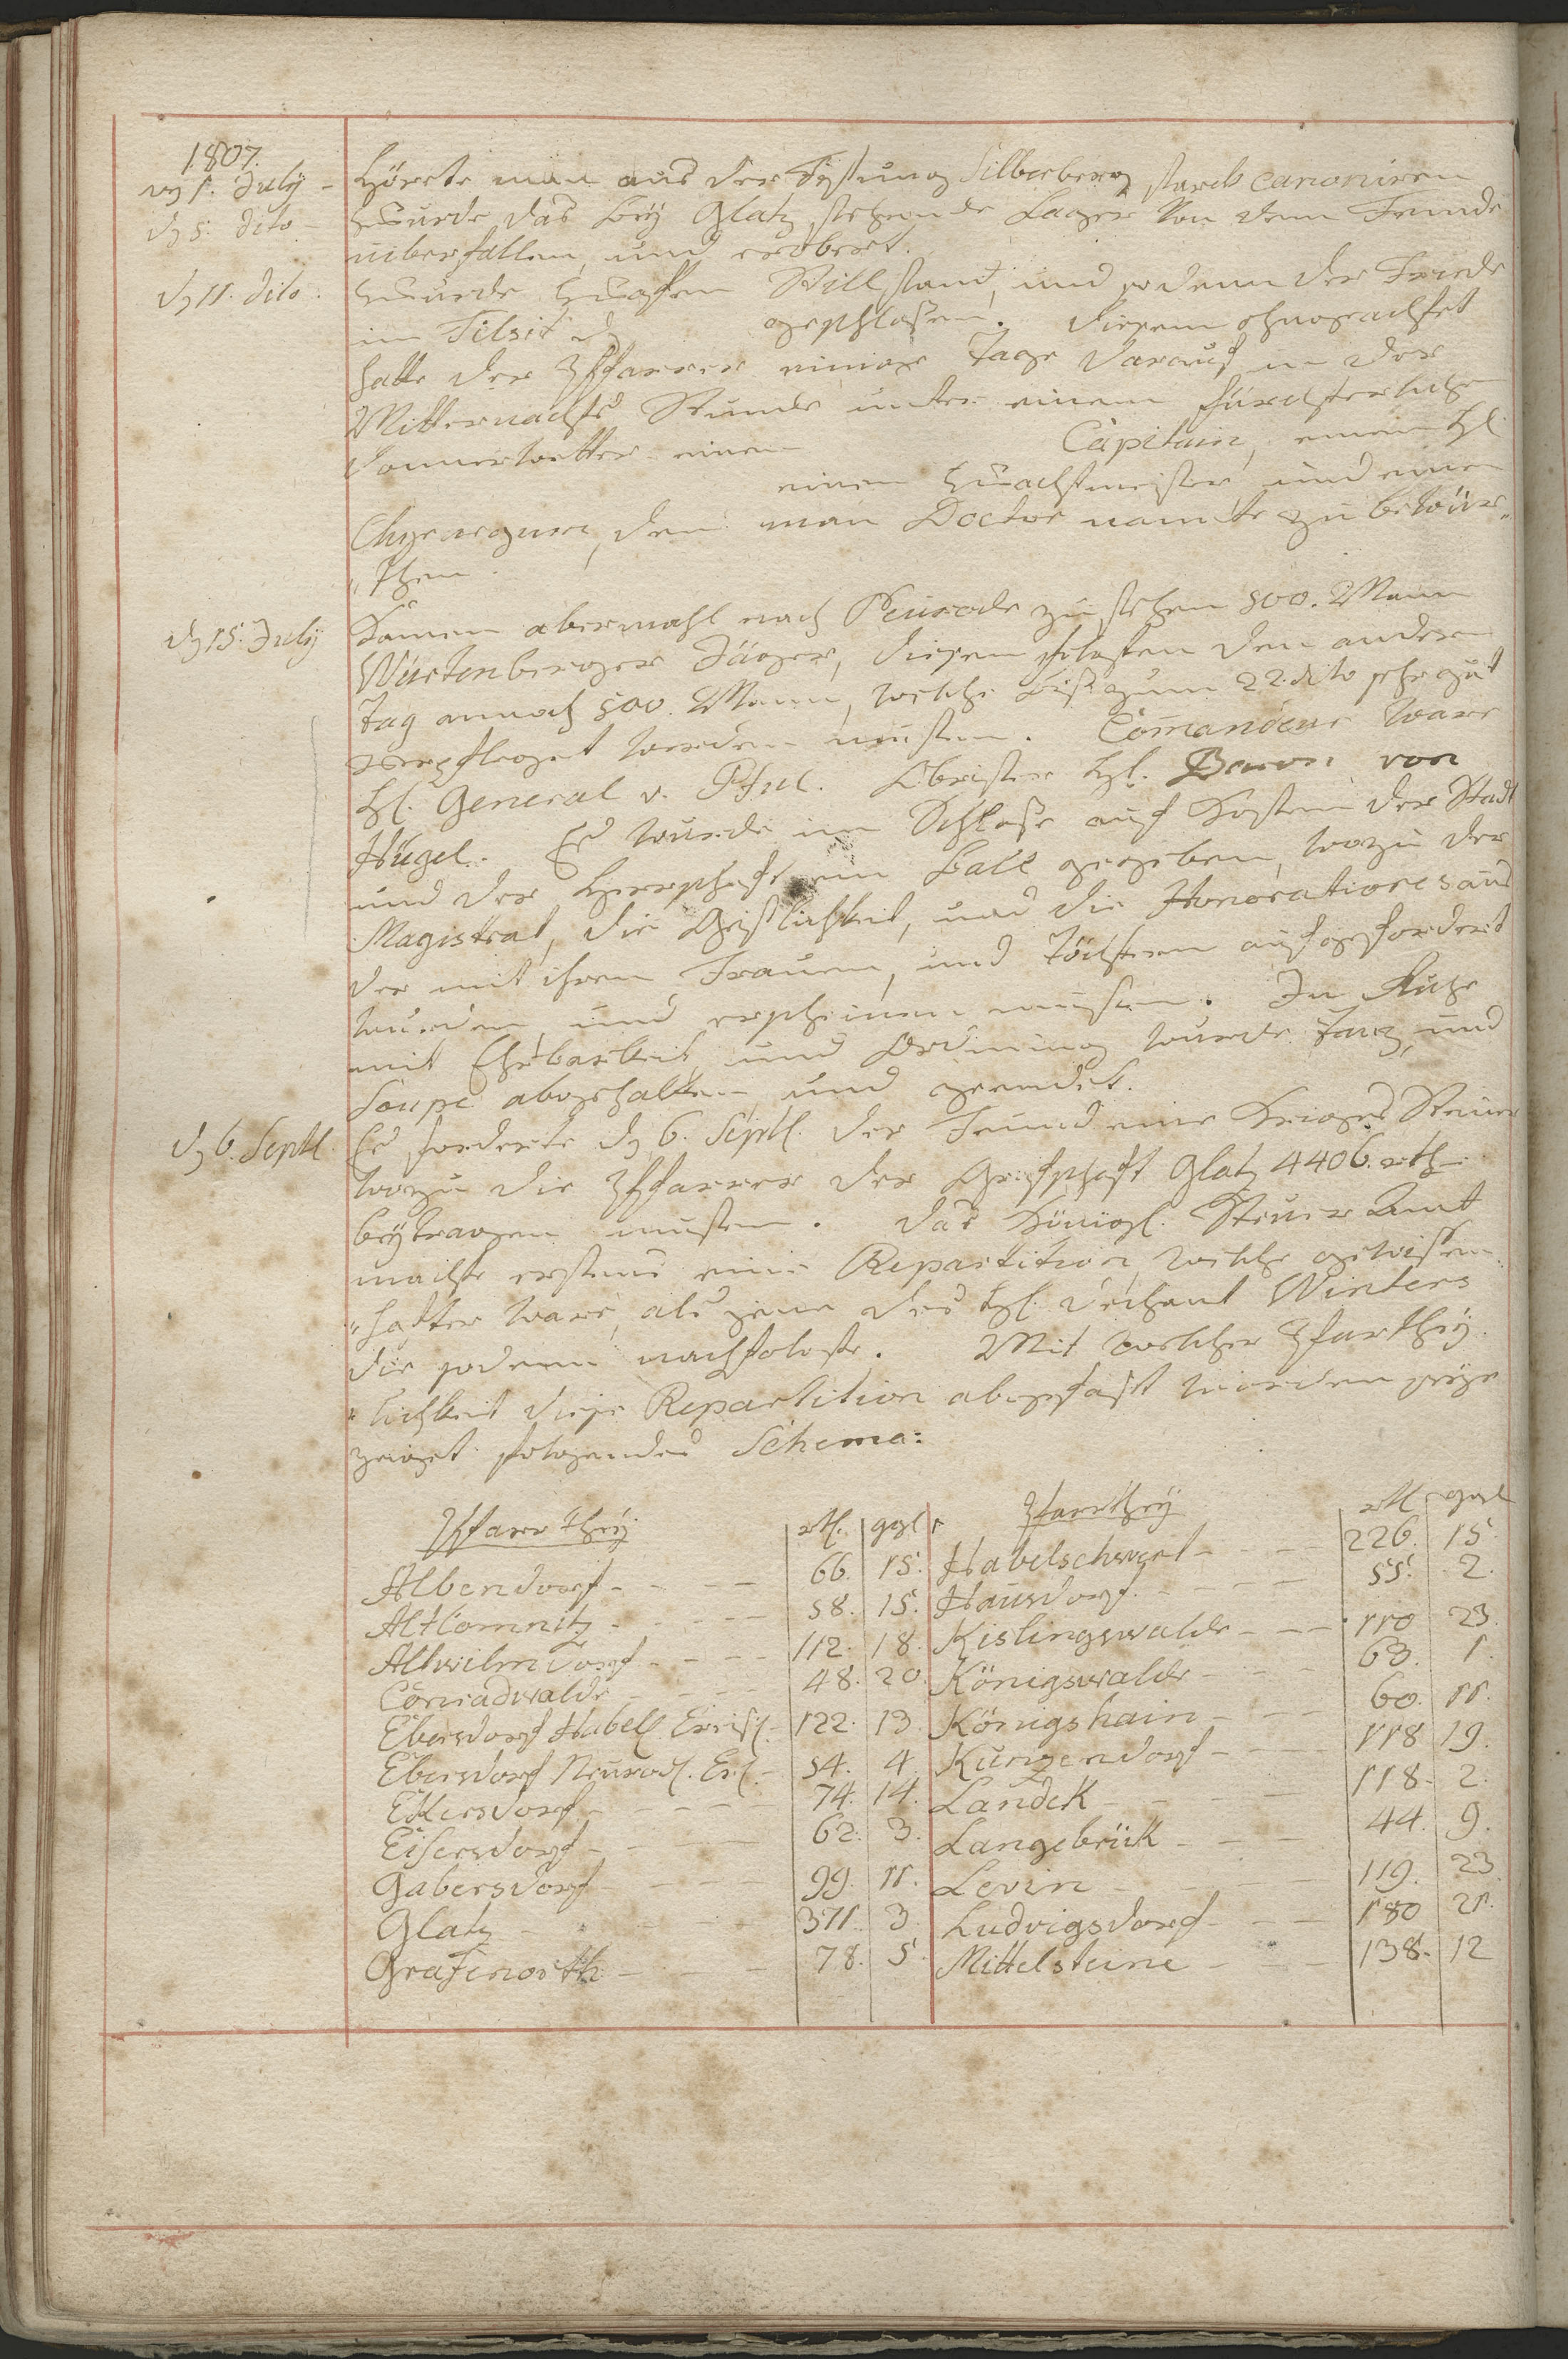 1807.
den 1. July - Hörrte man aus der Festung Silberberg starck canoniren
den 5. dito - Wurde das bey Glatz stehende Lager von dem Feinde
uiberfallen, und erobert.
den 11. dito. Wurde Waffen Stillstand, und sodenn der Friede
in Tilsit den geschlossen. Diesem ohngeachtet
hatte der Pfarrer einige Tage darauf in der
Mitternachts Stunde unter einem fürchterlichen
Donnerwetter einen Capitain, einen H.
einen Wachtmeister und einen
Chyrurgum, den man Doctor nannte zu bewür„
„then.
den 15. July Kamen abermahl nach Neurode zu stehen 500. Mann
Würtenberger Jäger, diesem folgten den andern
Tag annoch 500. Mann, welche bis zum 22. dito sehr gut
verpfleget werden musten. Com̄andeur ware
H. General v. Pful. Obrister H. Baron von
Hügel. Es wurde im Schloße auf Kosten der Stadt
und der Herrschaft ein Ball gegeben, wozu der
Magistrat, die Geistlichkeit, und die Honoratiores aus
der mit ihren Frauen, und Töchtern aufgefordert
wurden, und erscheinen musten. In Ruhe
mit Ehrbarkeit, und Ordnung wurde Tanz, und
Soupe abgehalten und geendet.
den 6. Septl. Es forderte den 6. Septl. der Feind eine Krieges Steuer
wozu die Pfarrer der Grafschaft Glatz 4406. rth
beytragen musten. Das Königl. Steuer Amt
machte erstens eine Repartition, welche gewissen
„hafter ware, als jene des H. Dechant Winters
die sodenn nachfolgte. Mit welcher Parthey
„lichkeit diese Repartition abgefast worden seye
zeiget folgendes Schema:
Pfarrthey rtl. ggl. Pfarrthey rtl ggl
Albendorf - - - - 66. 15. Habelschwert - - - 226. 15.
Altlomnitz - - - - 58. 15. Hausdorf - - - - 55. 2.
Altwilmsdorf - - - - 112. 18. Kislingswalde - - - 110 23.
Conradwalde - - - 48. 20. Königswalde - - - 63. 1.
Ebersdorf Habell. - 122. 13. Königshain - - - 60. 11.
Ebersdorf Neurod. - 54. 4. Kunzendorf - - - 118 19.
Ekersdorf - - - - 74. 14. Landek - - - - 118. 2.
Eisersdorf - - - 62. 3. Langebrük - - - 44. 9.
Gabersdorf - - - 99. 11. Levin - - - - 119. 23
Glatz - - - - 371. 3. Ludvigsdorf - - - 180 21.
Grafenorth - - - 78. 5. Mittelsteine - - - 138. 12